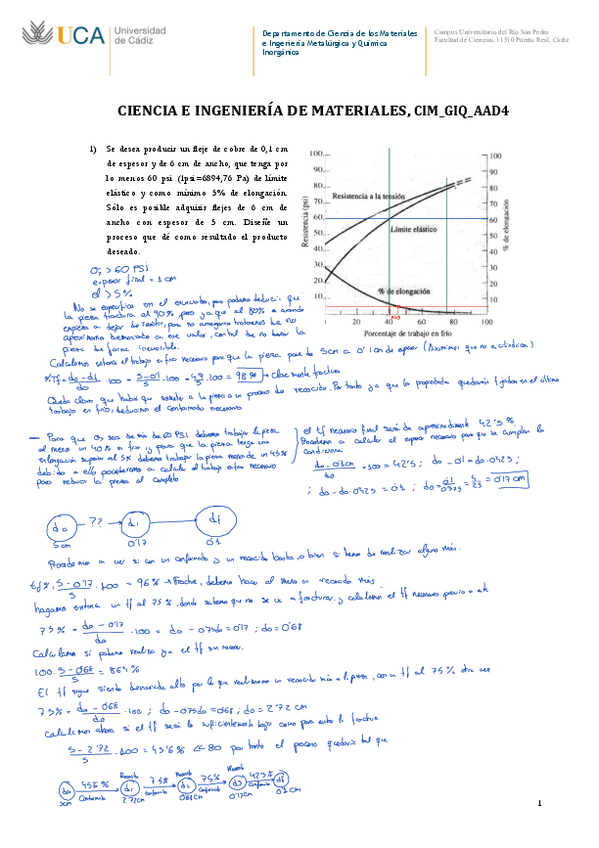 UCA
Universidad
de Cádiz
Departamento de Ciencia de los Materiales
e Ingeniería Metalúrgica y Química
Inorgánica
Campus Universitario del Río San Pedro
Facultad de Ciencias, 11510 Puerto Real, Cádiz
CIENCIA E INGENIERÍA DE MATERIALES, CIM_GIQ_AAD4
1) Se desea producir un fleje de cobre de 0,1 cm
de espesor y de 6 cm de ancho, que tenga por
lo menos 60 psi (1psi=6894,76 Pa) de límite
elástico y como mínimo 5% de elongación.
Sólo es posible adquirir flejes de 6 cm de
ancho con espesor de 5 cm. Diseñe un
proceso que dé como resultado el producto
deseado.
Resistencia (psi)
100
90
80
70
60
50
40
30
20
10
Resistencia a la tensión
Límite elástico
% de elongación
100
90
80
70
60
50
40
30
20
10
% de elongación
0 20 40 60 80 100
Porcentaje de trabajo en frío
> 60 PSI
espesor final = 1 cm
el > 5%
No se especifica en el enunciado, pero podemos deducir que
la pieza fractura al 90%, pero ya que al 80%
pieza de forma irreversible.
Calculamos entonces el trabajo en frío necesario para que la pieza pase de 5cm a 0'1cm de espesor
%Tf = do - df / do · 100 = 5 - 0'1 / 5 · 100 = 4'9 / 5 · 100 = 98% → claramente fractura
Queda claro que habrá que someter a la pieza a un proceso de recocido. Por tanto ya que las propiedades quedarán fijadas en el último
trabajo en frío, deducimos el conformado necesario
— Para que sea de más de 60 PSI debemos trabajar la pieza
al menos un 40% en frío y para que la pieza tenga una
elongación superior al 5% debemos trabajar la pieza menos de un 45%
debido a ello procedemos a calcular el trabajo en frío necesario
para reducir la pieza al completo
el tf necesario final será de aproximadamente 42'5%.
Procedemos a calcular el espesor necesario para que se cumplan las
condiciones
do - 0'1cm / do · 100 = 42'5 ; do - 0'1 = do · 0'425 ;
; do - do · 0'425 = 0'1 ; do = 0'1 / 0'575 = 4 / 23 = 0'17 cm
do → ?? → d1 → df
5cm 0'17 0'1
Procedemos a ver si con un conformado y un recocido basta, o bien si hemos de realizar alguno más.
5 - 0'17 / 5 · 100 = 96% → Fractura, debemos hacer al menos un recocido más.
hagamos entonces un tf al 75%, donde sabemos que no se va a fracturar y calculamos el tf necesario previo a este
75% = do - 0'17 / do · 100 = do - 0'75do = 0'17 ; do = 0'68
Calculamos si podemos realizar ya el tf sin recocer.
100 · 5 - 0'68 / 5 = 86'4 %
El tf sigue siendo demasiado alto por lo que realizaremos un recocido más a la pieza, con un tf al 75%
75% = do - 0'68 / do · 100 ; do - 0'75do = 0'68 ; do = 2'72 cm
calculamos ahora si el tf será lo suficientemente bajo como para evitar la fractura
5 - 2'72 / 5 · 100 = 45'6 % << 80 por tanto el proceso quedaría tal que
do → 45'6% Conformado → Recocido d1 → 75% Conformado → Recocido d2 → 75% Conformado → Recocido d3 → 42'5% Conformado → df
5cm 2'72cm 0'68cm 0'17cm 0'1cm
1